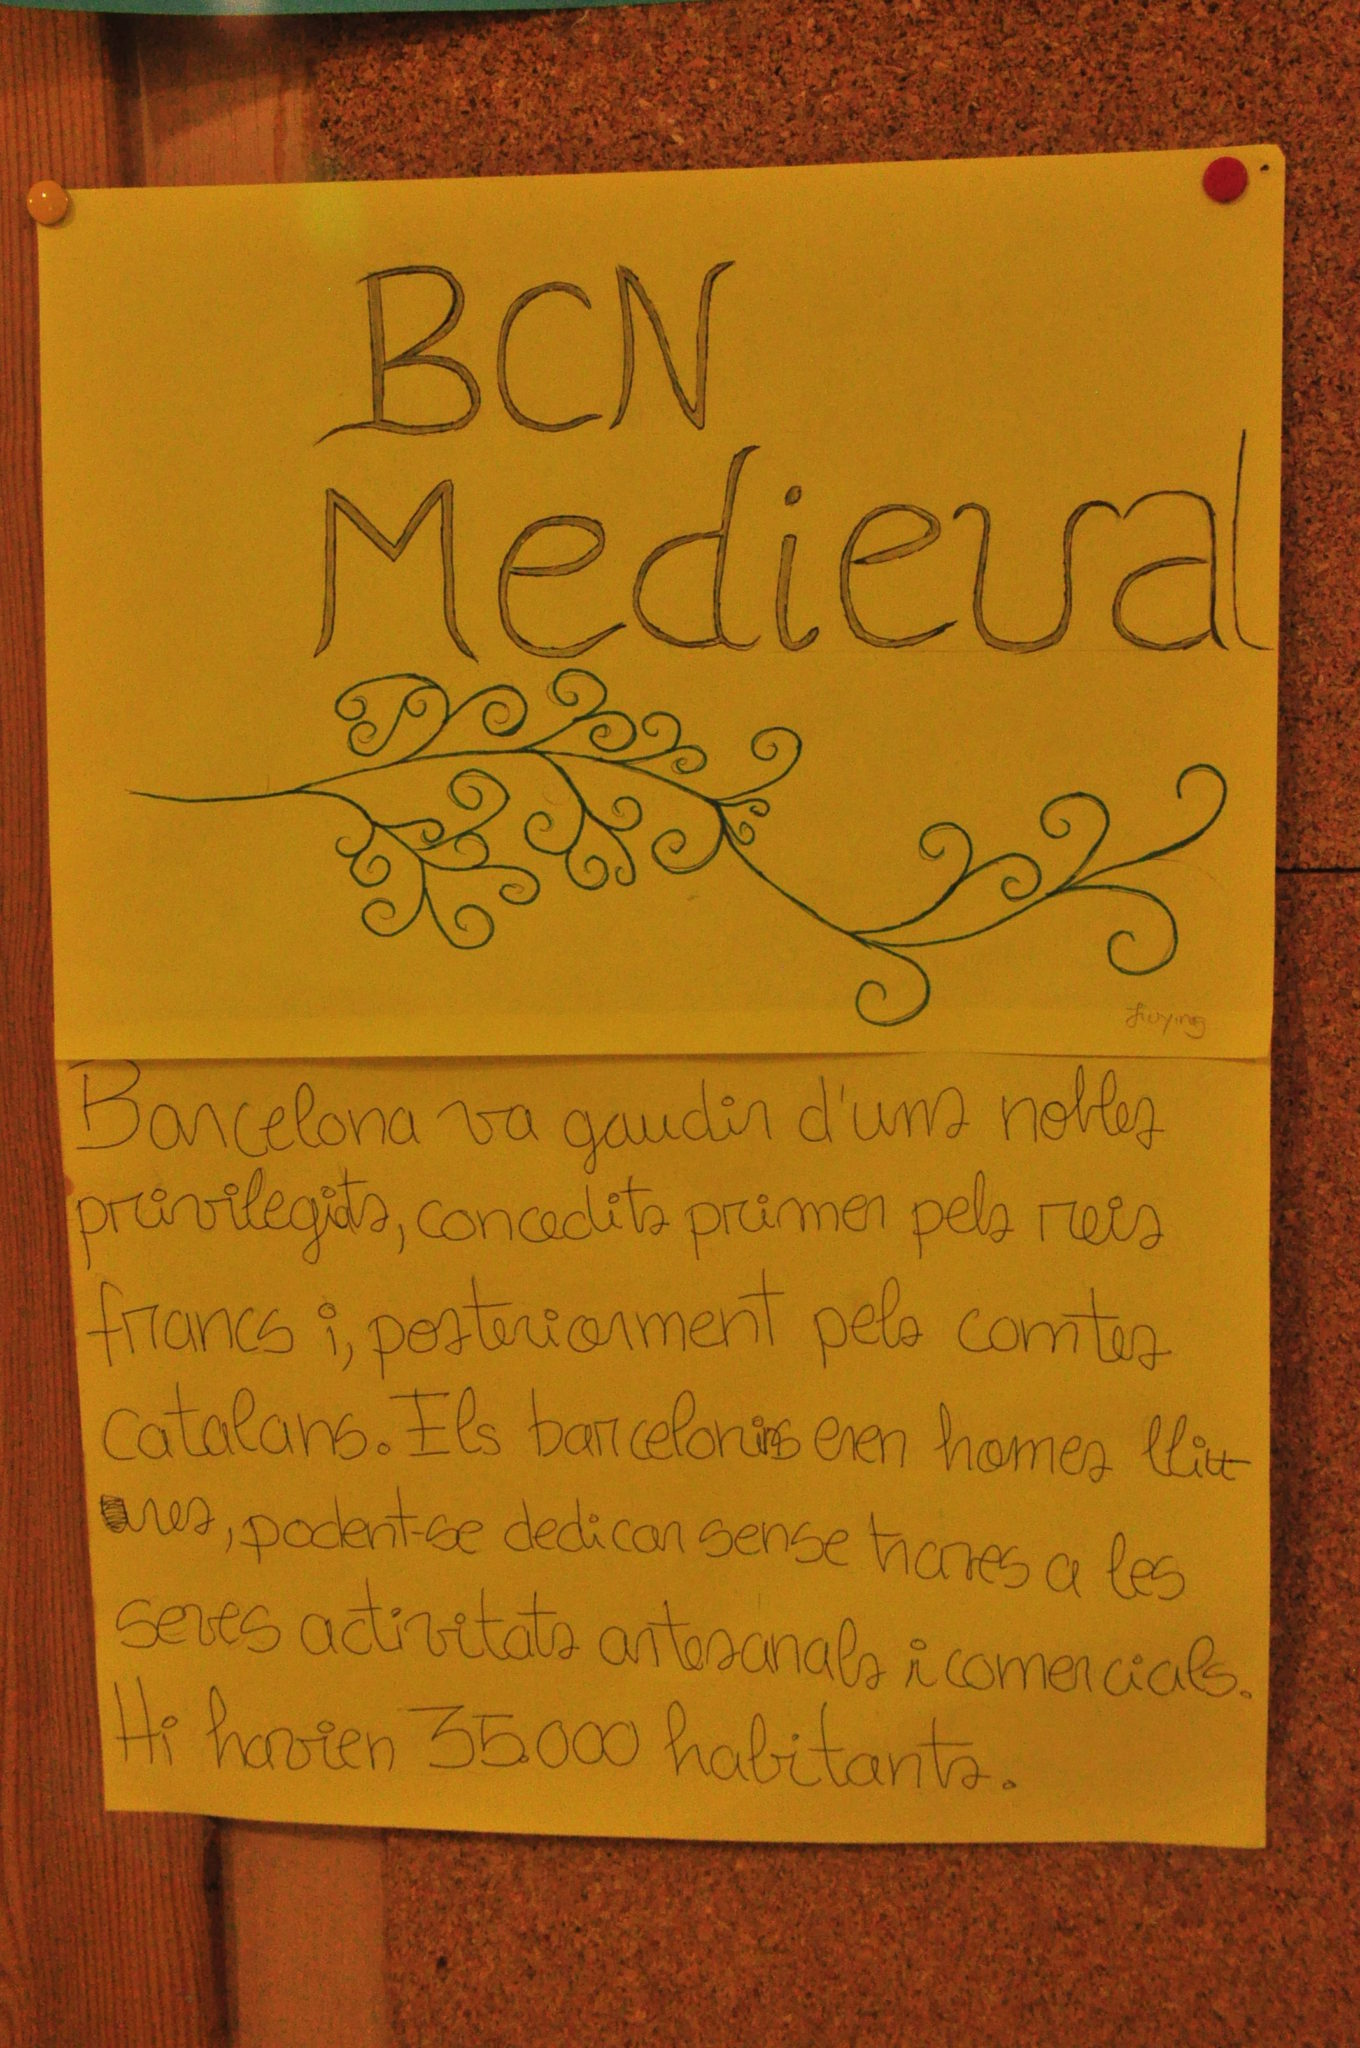 BCN
Medieval
Barcelona va gaudir d'uns nobles
privilegits, concedits primer pels reis
francs i, posteriorment pels comtes
catalans. Els barcelonins eren homes lliu
res, podent-se dedicar sense traves a les
seves activitats artesanals i comercials.
Hi havien 35.000 habitants.